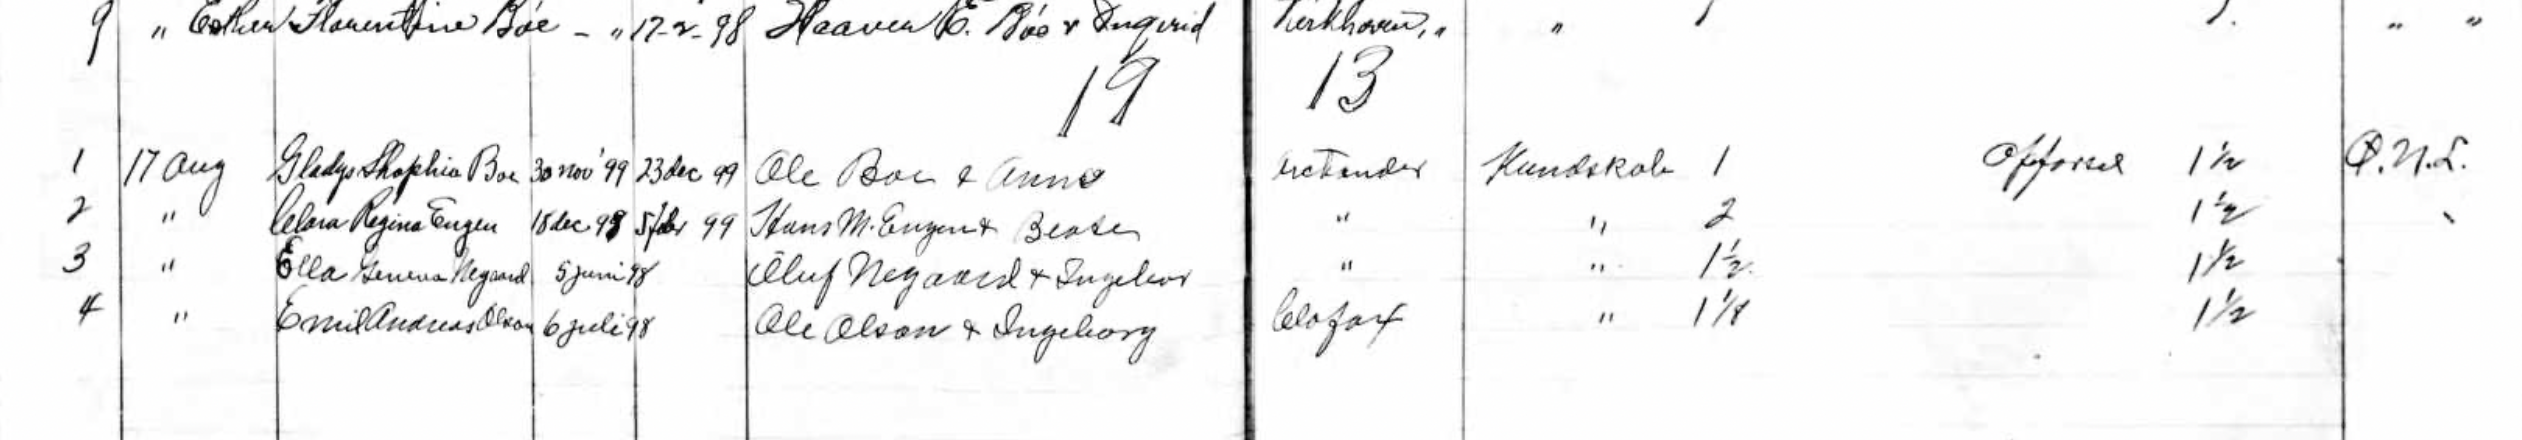 9 " Esther Florentine Böe - " 17-2-98 Haaven E. Böe & Ingerid Kerkhoven, " " 1 1. " "
1913
1 17 Aug Gladys Shophia Boe 30 nov '99 23 dec 99 Ole Boe & Anna Arctander Kundskab 1 Opførsel 1 1/2 O.N.L.
2 " Clara Regina Engen 18 dec 98 5 99 Hans M. Engen & Beate " " 2 1 1/2 "
3 " Ella Geneva Negaard 5 juni 98 Oluf Negaard & Ingebor " " 1 1/2 1 1/2
4 " Emil Andreas Olson 6 juli 98 Ole Olson & Ingeborg Colfax " 1 1/2